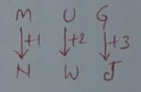 M U G
+1 +2 +3
N W J